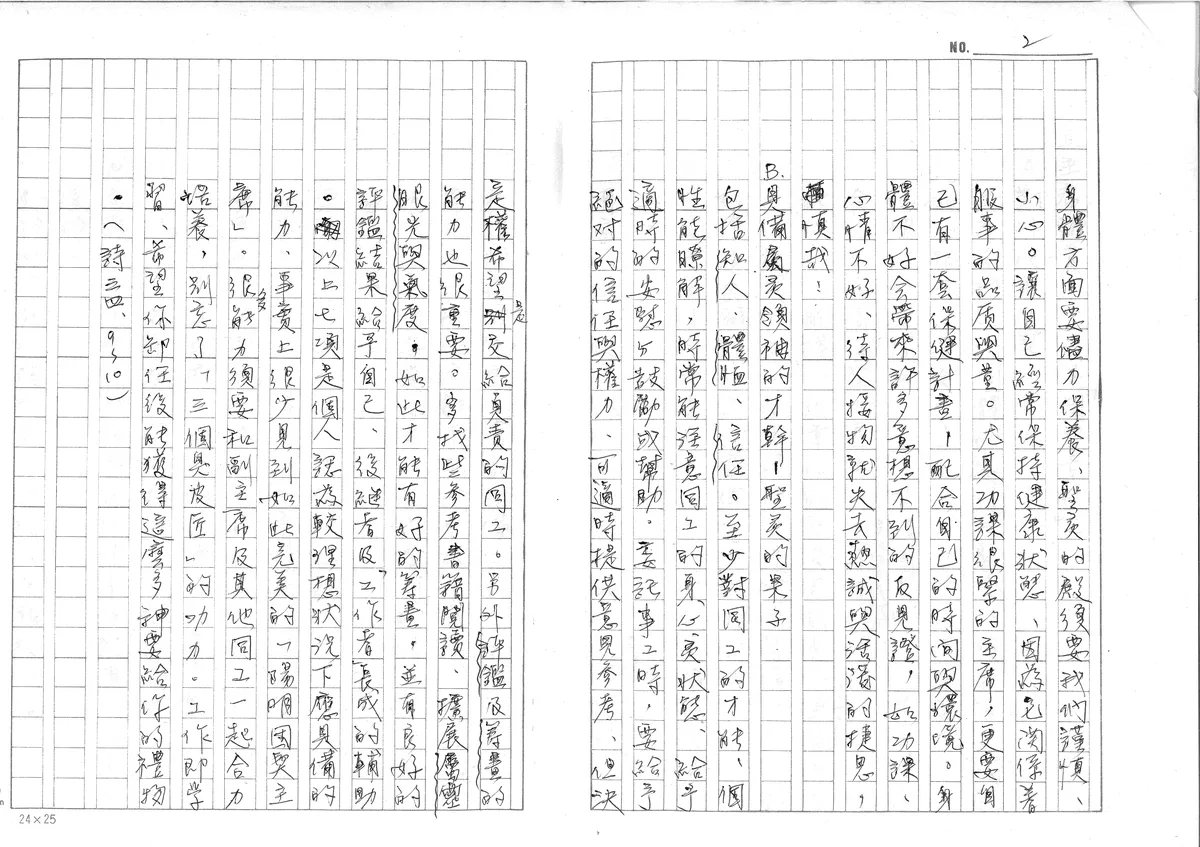 NO. 2
身體方面要儘力保養、聖灵的殿須要我们謹慎、
小心。讓自己經常保持健康狀態、因為它関係着
服事的品质與量。尤其功課很緊的主席,更要自
己有一套保健計畫,配合自己的時间與環境。身
體不好会帶來許多意想不到的反見證,如功課、
心情不好、待人接物就失去熱誠與活潑的捷思,
慎哉!
B.具備属灵領袖的才幹,聖灵的果子
包括知人、體恤、信任。至少對同工的才能、個
性能瞭解,時常能注意同工的身心灵状態、給予
適時的安慰与鼓勵或輔助。委託事工時,要給予
絕对的信任與權力、可適時提供意見參考、但決
定權希望是交給負責的同工。另外評鑑及筹畫的
能力也很重要。多找些參考書籍閱讀、擴展属灵
眼光與氣度。如此才能有好的筹畫。並有良好的
評鑑結果給予自己、後继者及「工作者」長成的輔助
。以上七項是個人認為較理想狀況下應具備的
能力、事實上很少見到如此完美的「陽明团契主
席」。很多能力須要和副主席及其他同工一起合力
培養,別忘了「三個臭皮匠」的功力。工作即学
習、希望你卸任後能獲得這麼多神要給你的禮物
。(詩三四、9~10)
24×25